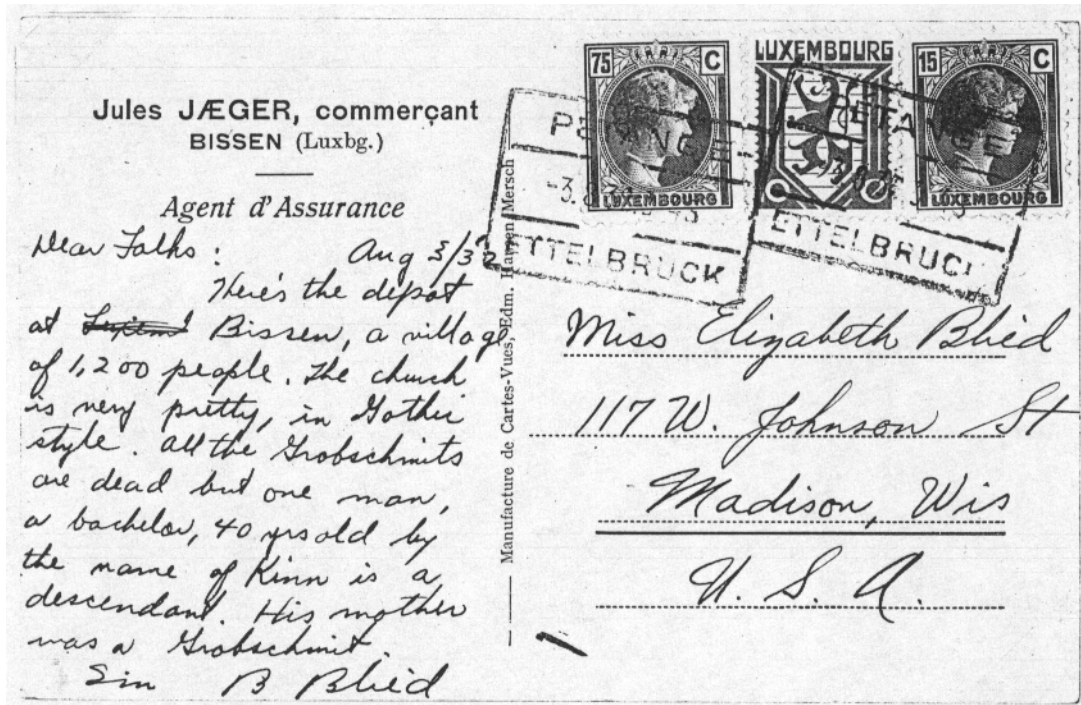 Jules JÆGER, commerçant
BISSEN (Luxbg.)
Agent d'Assurance
Dear Folks:
Aug 3/32
Here's the depot
at Bissen, a village
of 1,200 people. The church
is very pretty, in Gother
style. All the Grobschmits
are dead but one man,
a bachelor, 40 yrs old by
the name of Kinn is a
descendant. His mother
was a Grobschmit.
Sin B Blied
Manufacture de Cartes-Vues, Edm. Mersch
75 C
LUXEMBOURG
LUXEMBOURG
15 C
LUXEMBOURG
PETANGE
ETTELBRUCK
-3.8.32
ETTELBRUC
Miss Elizabeth Blied
117 W. Johnson St
Madison, Wis
U. S. A.